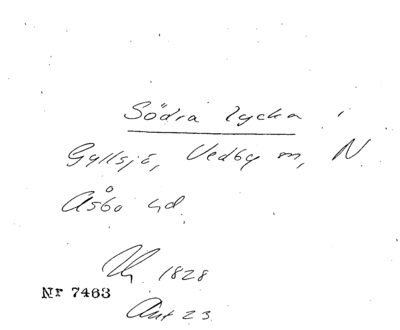 Södra lycka i
Gyllsjö, Vedby sn, N.
Åsbo hd.
1828
Nr 7463
Akt 23